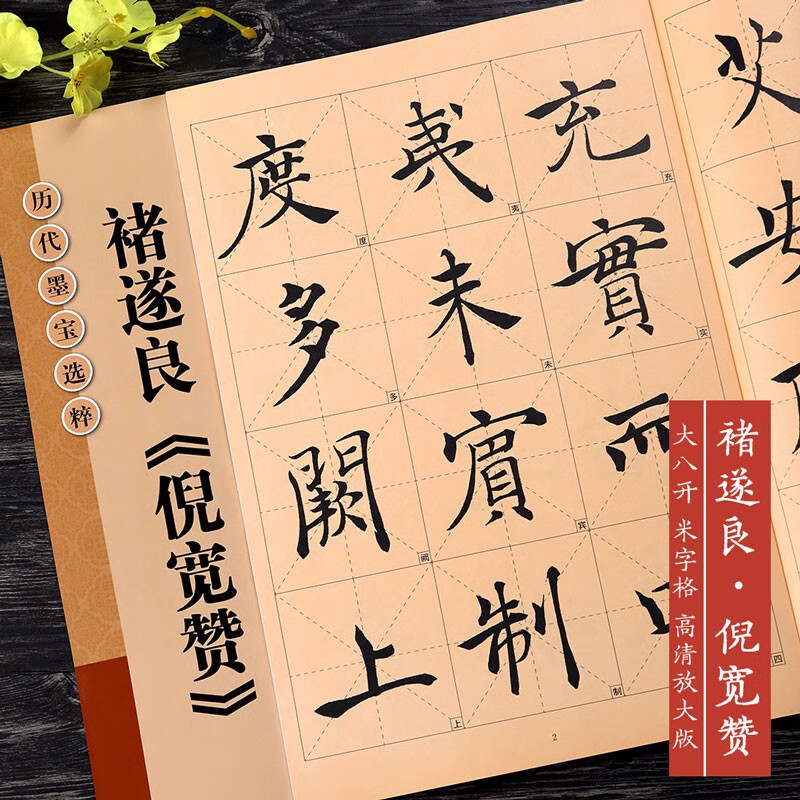 历代墨宝选粹
褚遂良《倪宽赞》
充實而
夷未賓制
度多闕上
充
实
四
夷
未
宾
制
度
多
阙
上
2
褚遂良·倪宽赞
大八开 米字格 高清放大版